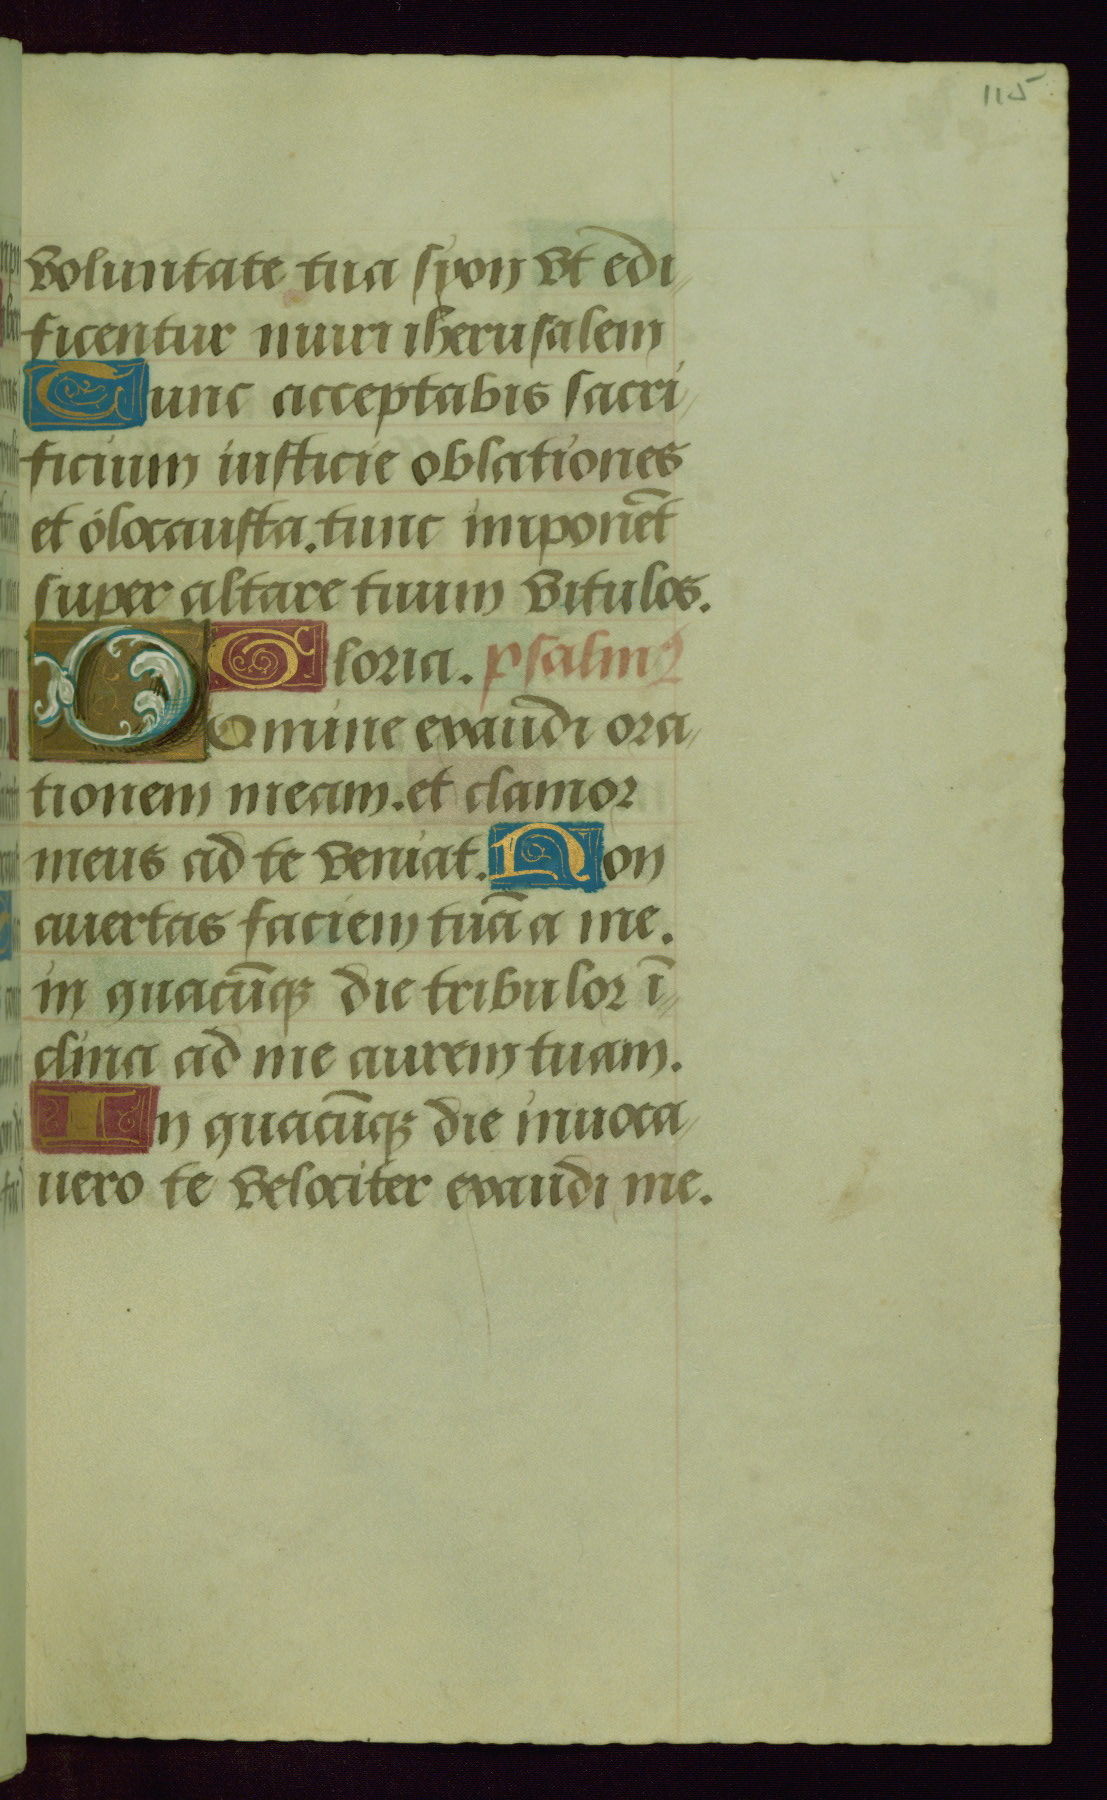 115
voluntate tua syon vt edi
ficentur muri iherusalem
Tunc acceptabis sacri
ficium iusticie oblationes
et olocausta. tunc imponēt
super altare tuum vitulos.
Gloria. psalmꝰ
Domine exaudi ora
tionem meam. et clamor
meus ad te veniat. Non
auertas faciem tuā a me.
in quacūqꝫ die tribulor ī
clina ad me aurem tuam.
In quacūqꝫ die inuoca
uero te velociter exaudi me.